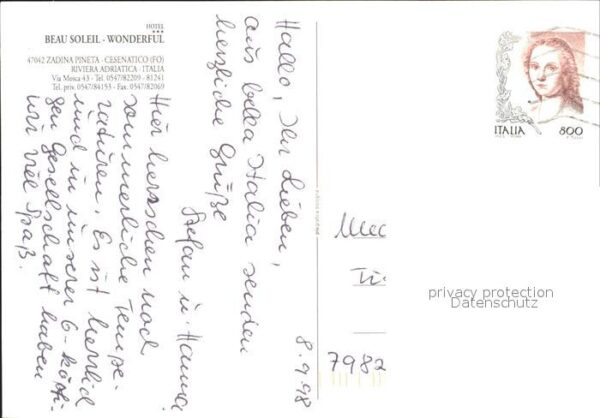 HOTEL
***
BEAU SOLEIL - WONDERFUL
47042 ZADINA PINETA - CESENATICO (FO)
RIVIERA ADRIATICA - ITALIA
Via Mosca 43 - Tel. 0547/82209 - 81241
Tel. priv. 0547/84153 - Fax. 0547/82069
8.9.98
Hallo, Ihr Lieben,
aus bella Italia senden
herzliche Grüße
Stefan u. Hanna
Hier herrschen noch
sommerliche Tempe-
raturen. Es ist herrlich
und in unserer 6-köpfi-
gen Gesellschaft haben
wir viel Spaß.
ITALIA 800
7982
privacy protection
Datenschutz